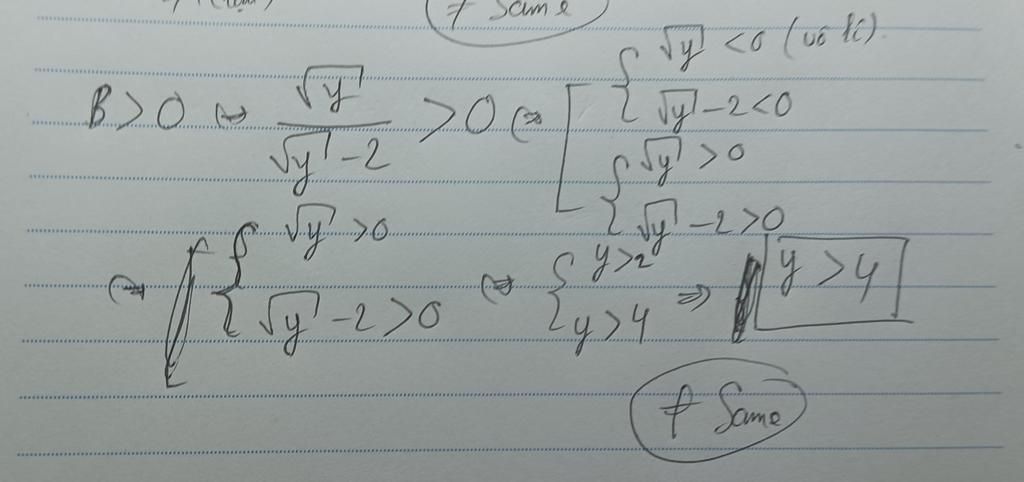 ≠ Same
B > 0 ⇔ √y / (√y - 2) > 0 ⇔ [ { √y < 0 (vô lí). √y - 2 < 0
{ √y > 0 √y - 2 > 0
⇔ { √y > 0 √y - 2 > 0 ⇔ { y > 2 y > 4 ⇒ y > 4
≠ Same